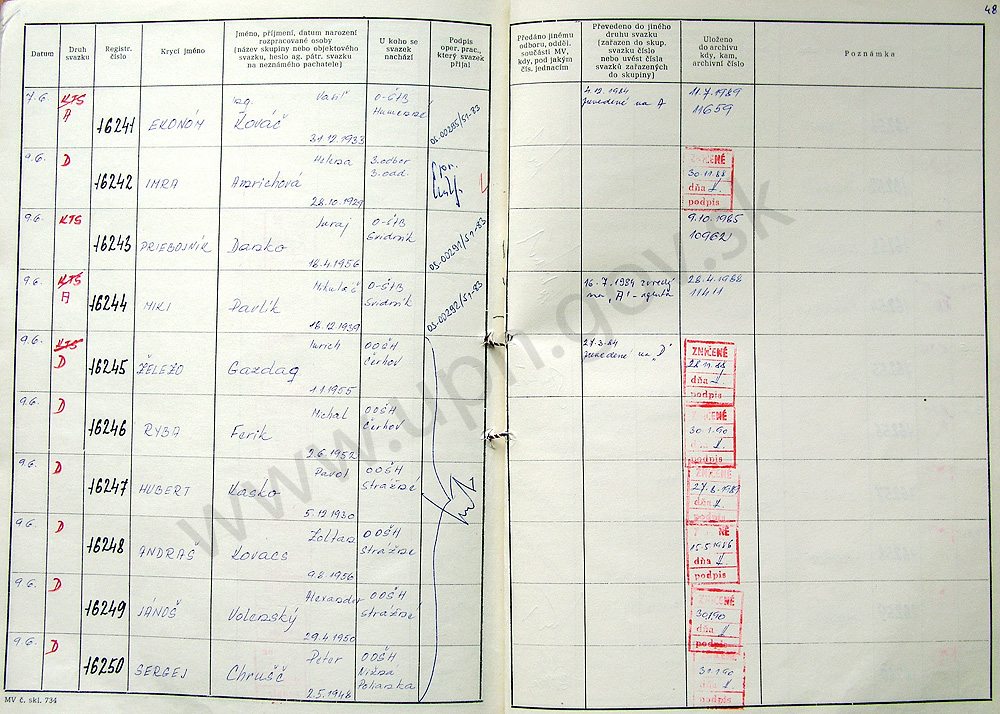 48
Datum
Druh svazku
Registr. číslo
Krycí jméno
Jméno, příjmení, datum narození
rozpracované osoby
(název skupiny nebo objektového
svazku, heslo ag. pátr. svazku
na neznámého pachatele)
U koho se
svazek
nachází
Podpis
oper. prac.,
který svazek
přijal
Předáno jinému
odboru, odděl.
součásti MV,
kdy, pod jakým
čís. jednacím
Převedeno do jiného
druhu svazku
(zařazen do skup.
svazku číslo
nebo uvést čísla
svazků zařazených
do skupiny)
Uloženo
do archivu
kdy, kam,
archivní číslo
Poznámka
7.6. KTS A 16241 EKONÓM Ing. Vasiľ Kováč 31.12.1933 O-ŠtB Humenné 03-00285/S1-83 4.12.1984 na A 11.7.1989 11659
9.6. D 16242 IMRA Helena Andrichová 28.10.1929 3. odbor 3. odd. ZNIČENÉ 30.11.88 dňa podpis
9.6. KTS 16243 PRIEBOJNÍK Juraj Danko 18.4.1956 O-ŠtB Svidník 03-00291/S1-83 9.10.1985 10962
9.6. KTS A 16244 MIKI Mikuláš Pavlík 18.12.1939 O-ŠtB Svidník 03-00292/S1-83 16.7.1984 na „A"-agenta 28.4.1988 11411
9.6. KTS D 16245 ŽELEZO Gazdag 1.1.1955 OOŠH Čerhov 27.3.84 na „D" ZNIČENÉ dňa podpis
9.6. D 16246 RYBA Michal Ferik 2.6.1952 OOŠH Čerhov 30.1.90 podpis
9.6. D 16247 HUBERT Pavol Kasko 5.12.1930 OOŠH Strážne ZNIČENÉ dňa podpis
9.6. D 16248 ANDRAŠ Zoltan Kovacs 9.2.1956 OOŠH Strážne 15.5.1986 dňa podpis
9.6. D 16249 JÁNOŠ Alexander Volenský 29.4.1950 OOŠH Strážne 30.1.90 dňa podpis
9.6. D 16250 SERGEJ Peter Chrušč 2.5.1948 OOŠH Nižná 31.1.90 dňa podpis
MV č. skl. 734
www.upn.gov.sk